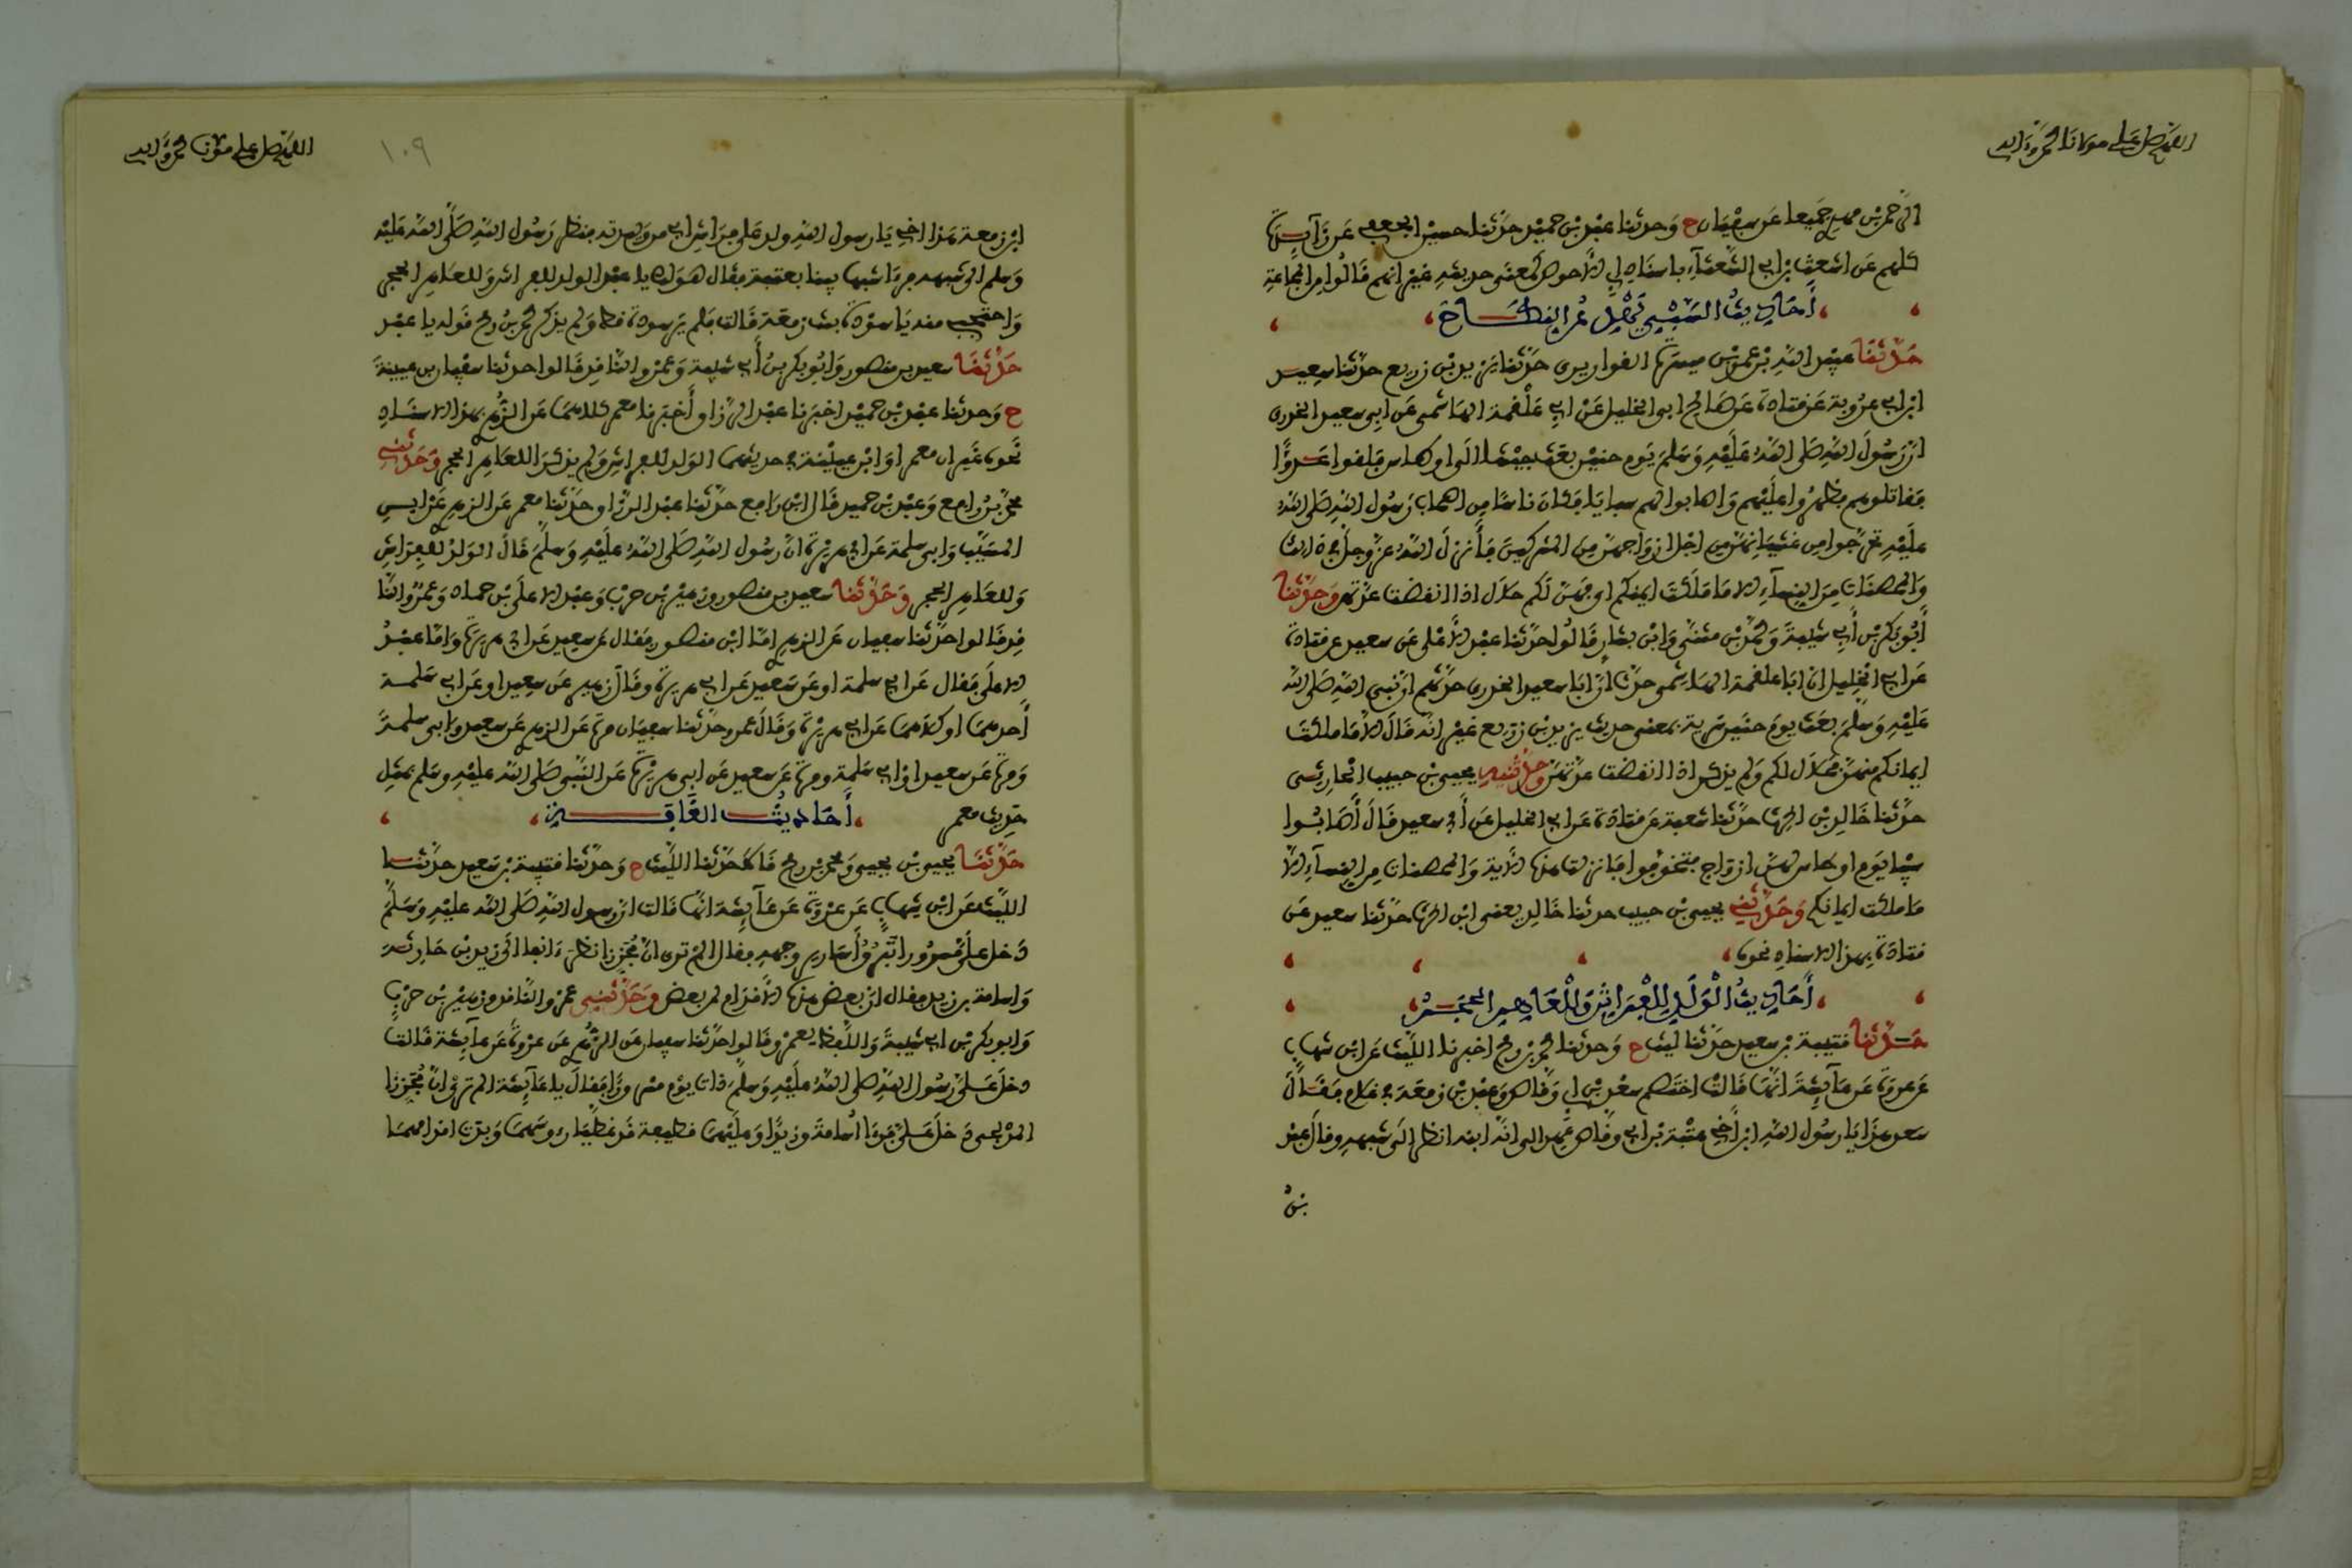 اللهم صل على مولانا محمد وءاله
الرحمن بن مهدي جميعا عن سفيان ح وحدثنا عبد بن حميد حدثنا حسين الجعفي عن زآيدة
كلهم عن اشعث بن ابي الشعثآء باسناد ابي الاحوص كمعنى حديثه غير انهم قالوا من المجاعة
أحاديث السبي يحصل عن النكاح
حدثنا عبيد الله بن عمر بن ميسرة القواريري حدثنا يزيد بن زريع حدثنا سعيد
ابن ابي عروبة عن قتادة عن صالح ابي الخليل عن ابي علقمة الهاشمي عن ابي سعيد الخدري
ان رسول الله صلى الله عليه وسلم يوم حنين بعث جيشا الى اوطاس فلقوا عدوا
فقاتلوهم فظهروا عليهم واصابوا لهم سبايا فكان ناسا من اصحاب رسول الله صلى الله
عليه تحرجوا من غشيانهن من اجل ازواجهن من المشركين فأنزل الله عز وجل في ذالك
والمحصنات من النسآء الا ما ملكت ايمنكم اي فهن لكم حلال اذا انقضت عدتهن وحدثنا
أبو بكر بن أبي شيبة ومحمد بن مثنى وابن بشار قالوا حدثنا عبد الأعلى عن سعيد عن قتادة
عن ابي الخليل ان ابا علقمة الهاشمي حدث ان ابا سعيد الخدري حدثهم ان نبي الله صلى الله
عليه وسلم بعث يوم حنين سرية بمعنى حديث يزيد بن زريع غير انه قال الا ما ملكت
ايمانكم منهن فحلال لكم ولم يذكر اذا انقضت عدتهن وحدثنيه يحيى بن حبيب الحارثي
حدثنا خالد بن الحرث حدثنا شعبة عن قتادة عن ابي الخليل عن أبي سعيد قال أصابوا
سبيا يوم اوطاس لهن ازواج فتخوفوا فانزلت هذه الآية والمحصنات من النسآء الا
ما ملكت ايمانكم وحدثني يحيى بن حبيب حدثنا خالد يعني ابن الحرث حدثنا سعيد عن
قتادة بهذا الاسناد نحوه
أحاديث الولد للفراش وللعاهر الحجر
حدثنا قتيبة بن سعيد حدثنا ليث ح وحدثنا محمد بن رمح اخبرنا الليث عن ابن شهاب
عن عروة عن عآيشة أنها قالت اختصم سعد بن ابي وقاص وعبد بن زمعة في غلام فقال
سعد هذا يا رسول الله ابن أخي عتبة بن ابي وقاص عهد الي انه ابنه انظر الى شبهه وقال عبد
بن
اللهم صل على مولانا محمد وءاله
١٠٩
ابن زمعة هذا اخي يا رسول الله ولد على فراش ابي من وليدته فنظر رسول الله صلى الله عليه
وسلم الى شبهه فرءا شبها بينا بعتبة فقال هو لك يا عبد الولد للفراش وللعاهر الحجر
واحتجبي منه يا سودة بنت زمعة قالت فلم ير سودة قط ولم يذكر محمد بن رمح قوله يا عبد
حدثنا سعيد بن منصور وابو بكر بن أبي شيبة وعمرو الناقد قالوا حدثنا سفيان بن عيينة
ح وحدثنا عبد بن حميد اخبرنا عبد الرزاق أخبرنا معمر كلاهما عن الزهري بهذا الاسناد
نحوه غير ان معمرا وابن عيينة في حديثهما الولد للفراش ولم يذكرا للعاهر الحجر وحدثني
محمد بن رافع وعبد بن حميد قال ابن رافع حدثنا عبد الرزاق حدثنا معمر عن الزهري عن ابن
المسيب وابي سلمة عن ابي هريرة ان رسول الله صلى الله عليه وسلم قال الولد للفراش
وللعاهر الحجر وحدثنا سعيد بن منصور وزهير بن حرب وعبد الاعلى بن حماد وعمرو النا
قد قالوا حدثنا سفيان عن الزهري اما ابن منصور فقال عن سعيد عن ابي هريرة واما عبد
الاعلى فقال عن ابي سلمة او عن سعيد عن ابي هريرة وقال زهير عن سعيد او عن ابي سلمة
أحدهما او كلاهما عن ابي هريرة وقال عمرو حدثنا سفيان مرة عن الزهري عن سعيد وابي سلمة
ومرة عن سعيد او ابي سلمة ومرة عن سعيد عن ابي هريرة عن النبي صلى الله عليه وسلم بمثل
حديث معمر أحاديث القافة
حدثنا يحيى بن يحيى ومحمد بن رمح قالا حدثنا الليث ح وحدثنا قتيبة بن سعيد حدثنا
الليث عن ابن شهاب عن عروة عن عآيشة انها قالت ان رسول الله صلى الله عليه وسلم
دخل علي مسرورا تبرق أسارير وجهه فقال الم تري ان مجززا نظر ءانفا الى زيد بن حارثة
واسامة بن زيد فقال ان بعض هذه الأقدام لمن بعض وحدثني عمرو الناقد وزهير بن حرب
وابو بكر بن ابي شيبة واللفظ لعمرو قالوا حدثنا سفيان عن الزهري عن عروة عن عآيشة قالت
دخل علي رسول الله صلى الله عليه وسلم ذات يوم مسرورا فقال يا عآيشة الم تري ان مجززا
المدلجي دخل علي فرءا أسامة وزيدا وعليهما قطيفة قد غطيا رءوسهما وبدت اقدامهما